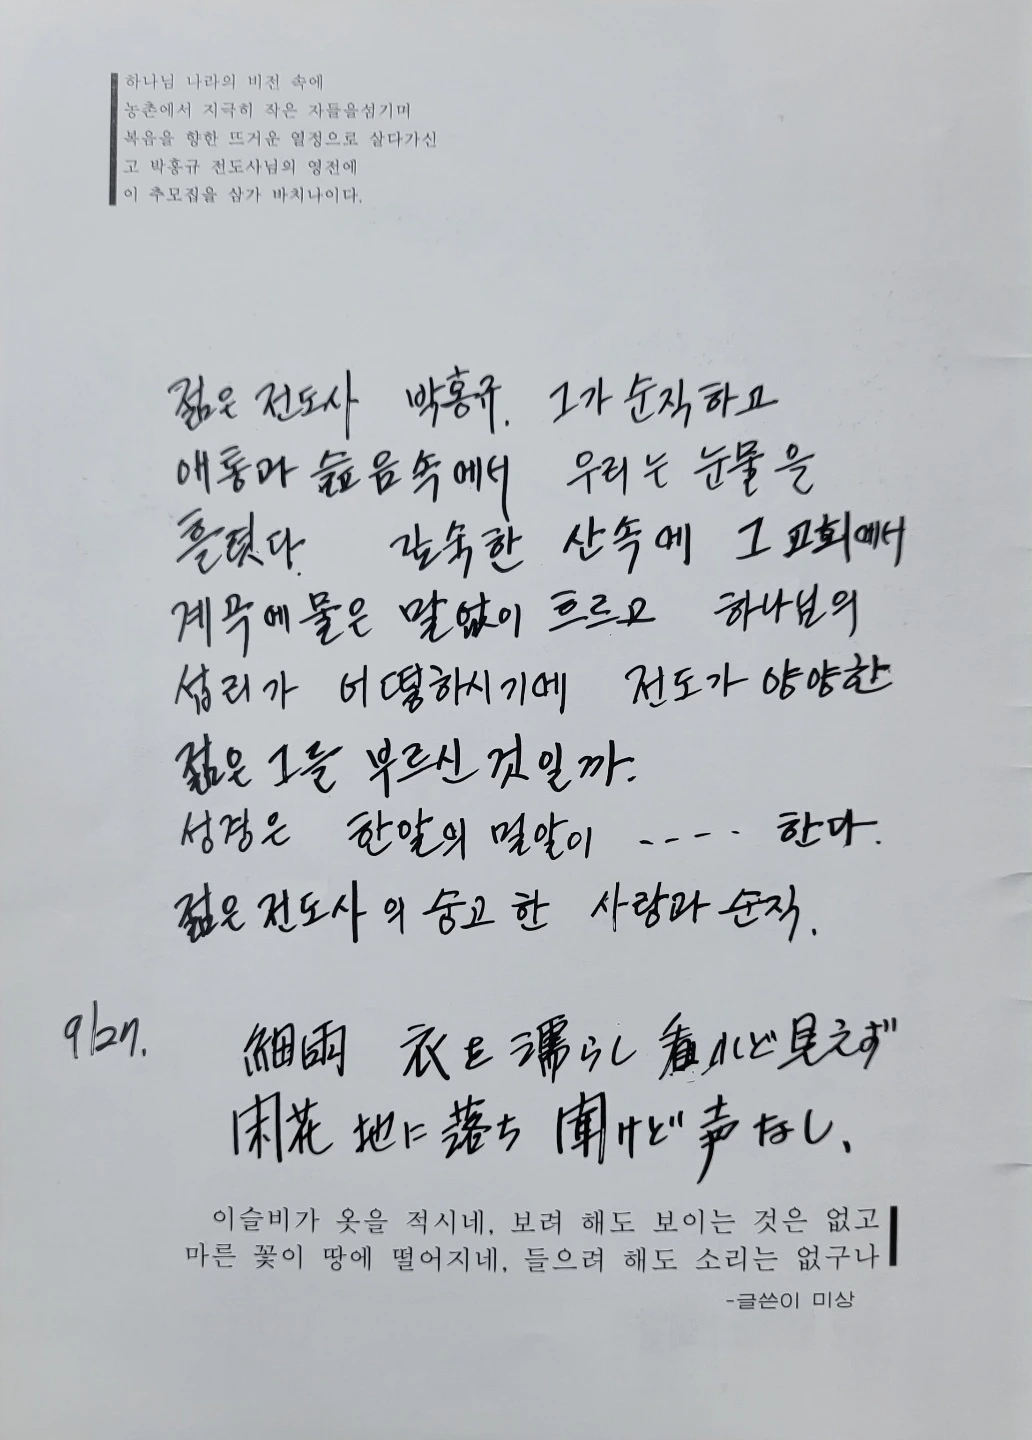 하나님 나라의 비전 속에
농촌에서 지극히 작은 자들을섬기며
복음을 향한 뜨거운 열정으로 살다가신
고 박홍규 전도사님의 영전에
이 추모집을 삼가 바치나이다.
젊은 전도사 박홍규. 그가 순직하고
애통과 슬픔속에서 우리는 눈물을
흘렸다. 깊숙한 산속에 그 교회에서
계곡에 물은 말없이 흐르고 하나님의
섭리가 어떻하시기에 전도가 양양한
젊은 그를 부르신 것일까.
성경은 한알의 밀알이 ---- 한다.
젊은 전도사의 숭고한 사랑과 순직.
9/27. 細雨 衣を濡らし 看れど見えず
閑花 地に落ち 聞けど声なし、
이슬비가 옷을 적시네, 보려 해도 보이는 것은 없고
마른 꽃이 땅에 떨어지네, 들으려 해도 소리는 없구나
-글쓴이 미상